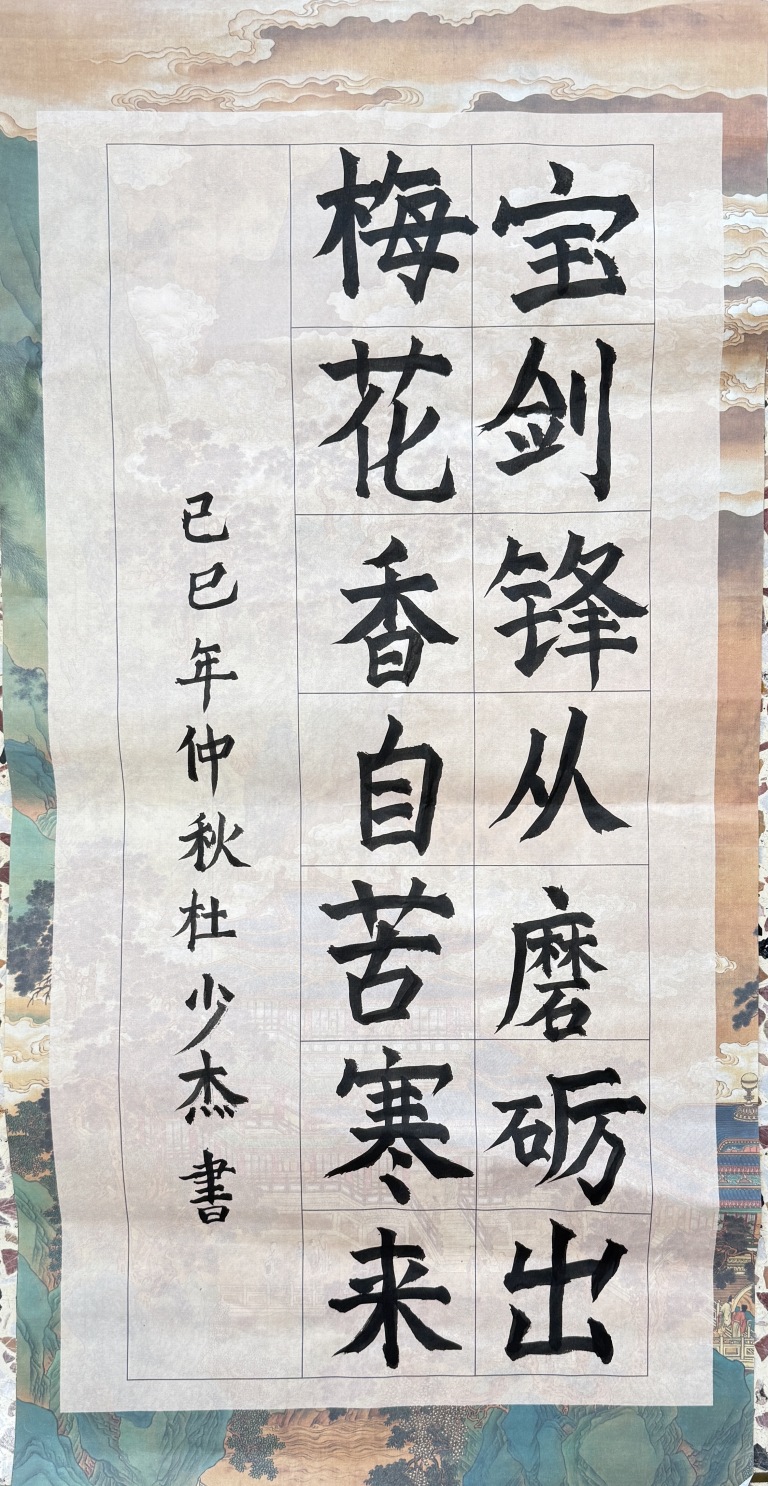 宝剑锋从磨砺出
梅花香自苦寒来
己巳年仲秋杜少杰書